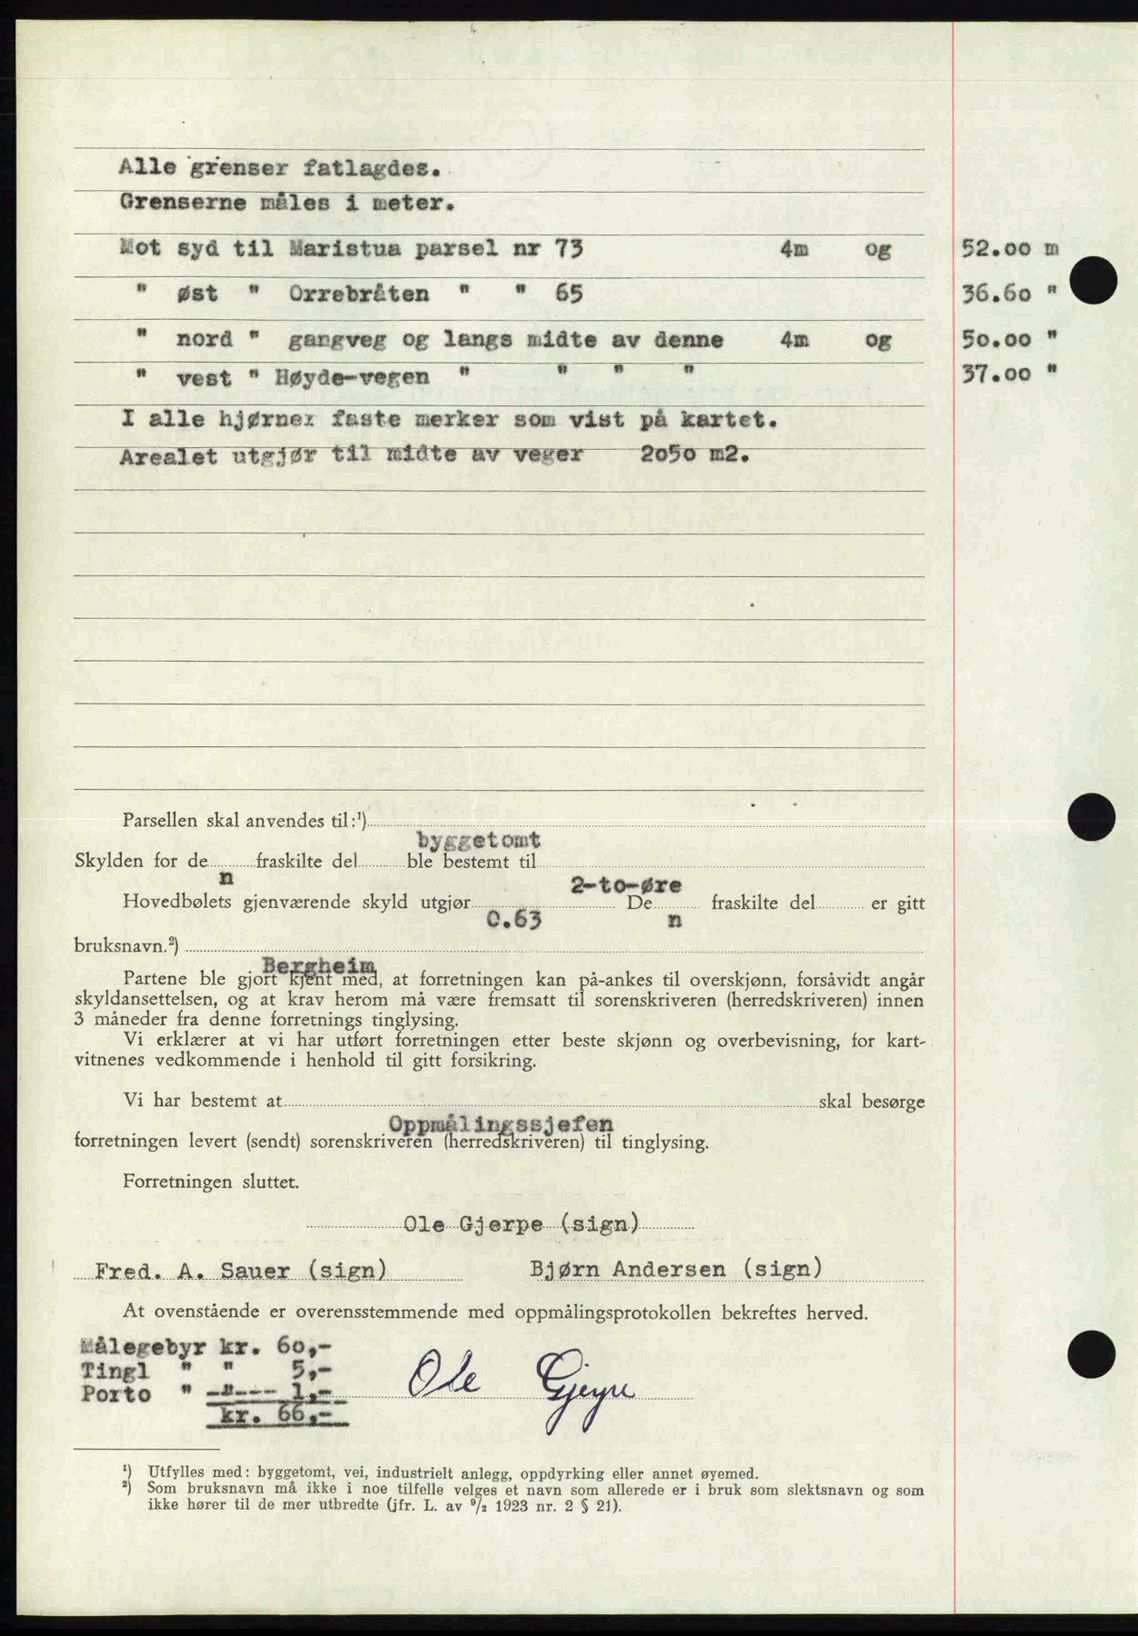 Alle grenser fatlagdes.
Grenserne måles i meter.
Mot syd til Maristua parsel nr 73 4m og 52.00 m
" øst " Orrebråten " " 65 36.60 "
" nord " gangveg og langs midte av denne 4m og 50.00 "
" vest " Høyde-vegen " " " " 37.00 "
I alle hjørner faste merker som vist på kartet.
Arealet utgjør til midte av veger 2050 m2.
Parsellen skal anvendes til:¹)
byggetomt
Skylden for de fraskilte del ble bestemt til
n 2-to-øre
Hovedbølets gjenværende skyld utgjør De fraskilte del er gitt
0.63 n
bruksnavn.²)
Bergheim
Partene ble gjort kjent med, at forretningen kan på-ankes til overskjønn, forsåvidt angår
skyldansettelsen, og at krav herom må være fremsatt til sorenskriveren (herredskriveren) innen
3 måneder fra denne forretnings tinglysing.
Vi erklærer at vi har utført forretningen etter beste skjønn og overbevisning, for kart-
vitnenes vedkommende i henhold til gitt forsikring.
Vi har bestemt at skal besørge
Oppmålingssjefen
forretningen levert (sendt) sorenskriveren (herredskriveren) til tinglysing.
Forretningen sluttet.
Ole Gjerpe (sign)
Fred. A. Sauer (sign) Bjørn Andersen (sign)
At ovenstående er overensstemmende med oppmålingsprotokollen bekreftes herved.
Målegebyr kr. 60,-
Tingl " " 5,-
Porto " -"--- 1,-
Ole Gjerpe
kr. 66,-
¹) Utfylles med: byggetomt, vei, industrielt anlegg, oppdyrking eller annet øyemed.
²) Som bruksnavn må ikke i noe tilfelle velges et navn som allerede er i bruk som slektsnavn og som
ikke hører til de mer utbredte (jfr. L. av 9/2 1923 nr. 2 § 21).